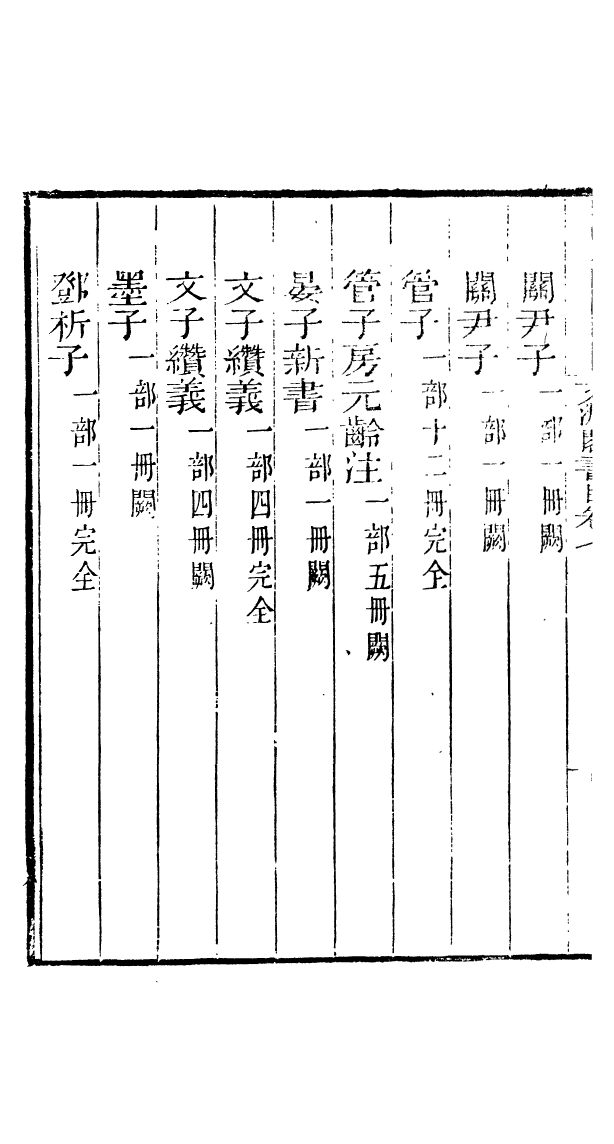 文淵閣書目卷
關尹子一部一冊闕
關尹子一部一冊闕
管子一部十二冊完全
管子房元齡注一部五冊闕
晏子新書一部一冊闕
文子纘義一部四冊完全
文子纘義一部四冊闕
墨子一部一冊闕
鄧析子一部一冊完全